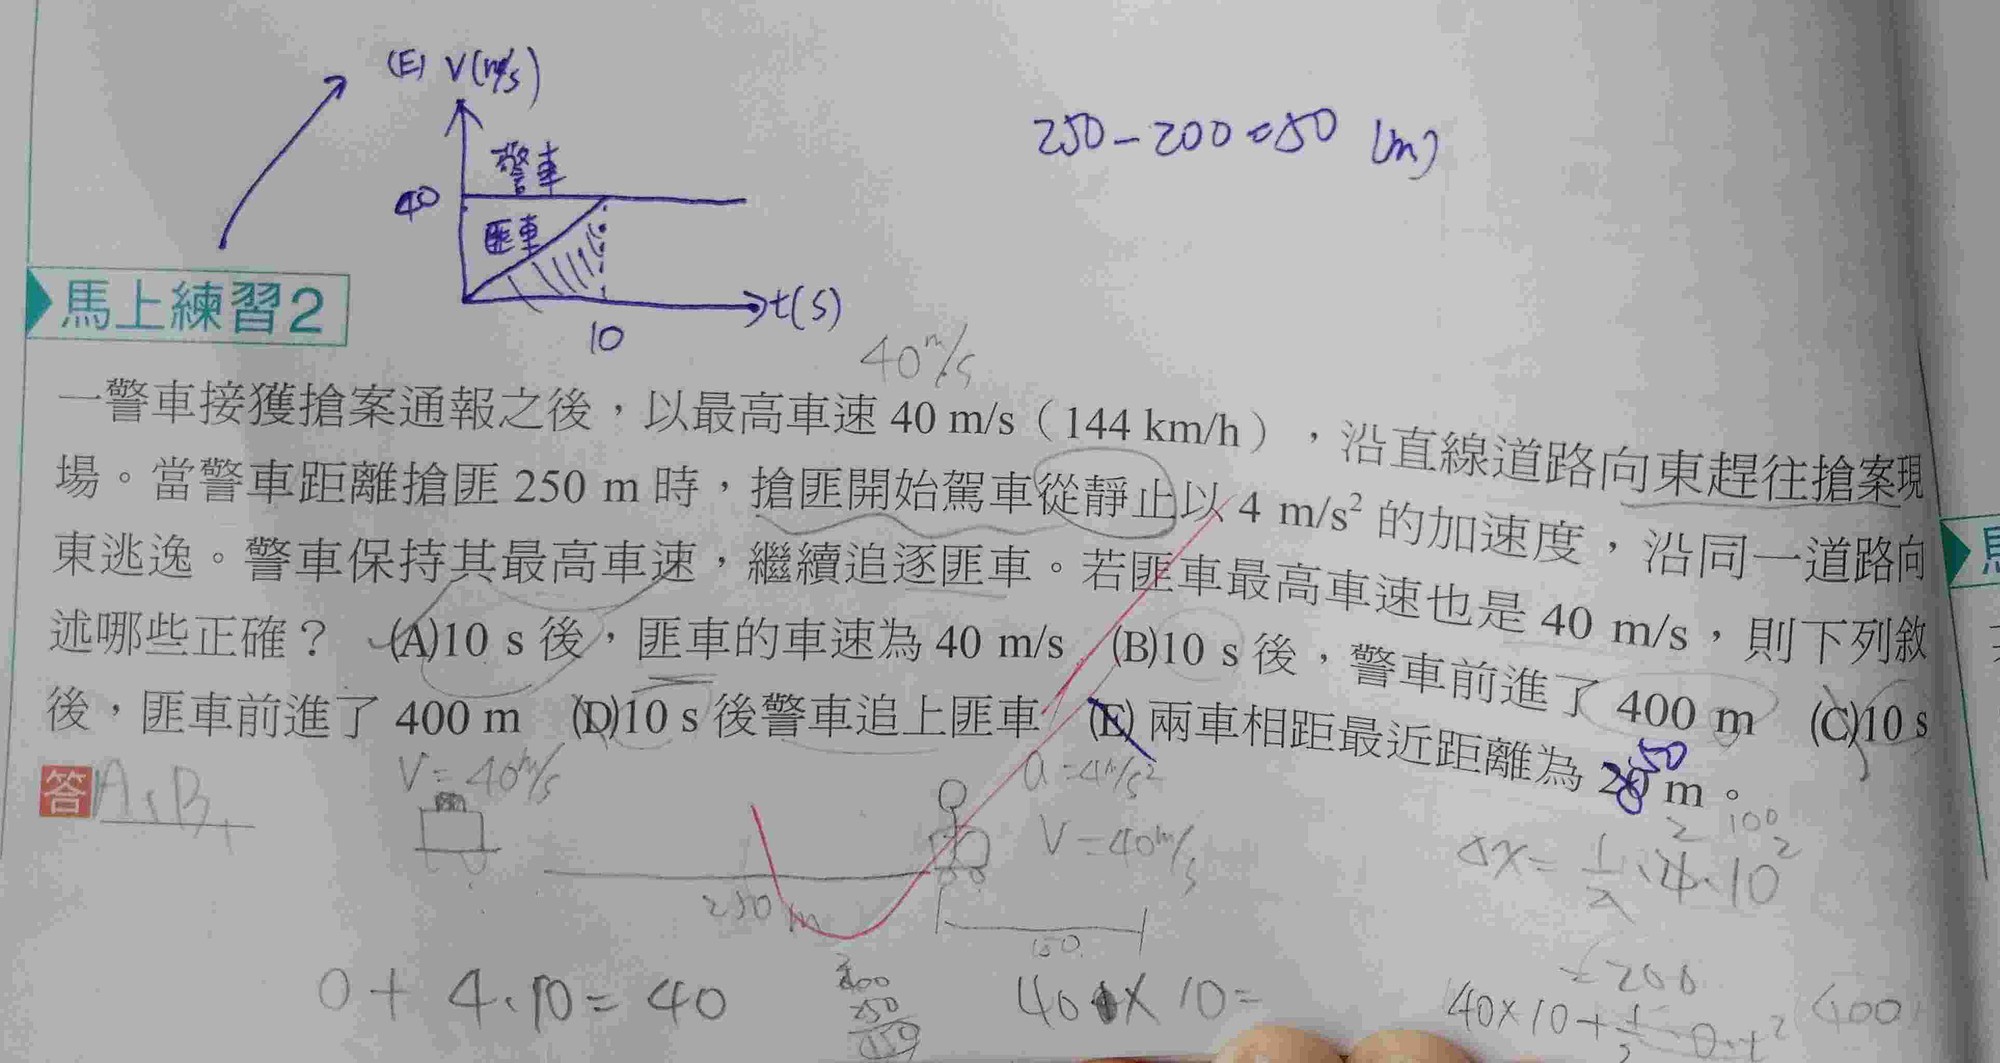 (E) V(m/s)
250-200=50 (m)
警車
40
匪車
t(s)
10
馬上練習2
40 m/s
一警車接獲搶案通報之後，以最高車速 40 m/s（144 km/h），沿直線道路向東趕往搶案現
場。當警車距離搶匪 250 m 時，搶匪開始駕車從靜止以 4 m/s² 的加速度，沿同一道路向
東逃逸。警車保持其最高車速，繼續追逐匪車。若匪車最高車速也是 40 m/s，則下列敘
述哪些正確？ (A)10 s 後，匪車的車速為 40 m/s (B)10 s 後，警車前進了 400 m (C)10 s
後，匪車前進了 400 m (D)10 s 後警車追上匪車 (E) 兩車相距最近距離為 50 m。
答 A、B
V=40m/s
a=4m/s²
V=40m/s
250 m
2 100
Δx=1/2·4·10²
=200
0+4·10=40
250
40×10=
40×10+1/2·0·t²
400